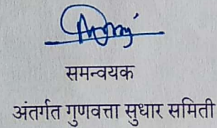 समन्वयक
अंतर्गत गुणवत्ता सुधार समिती